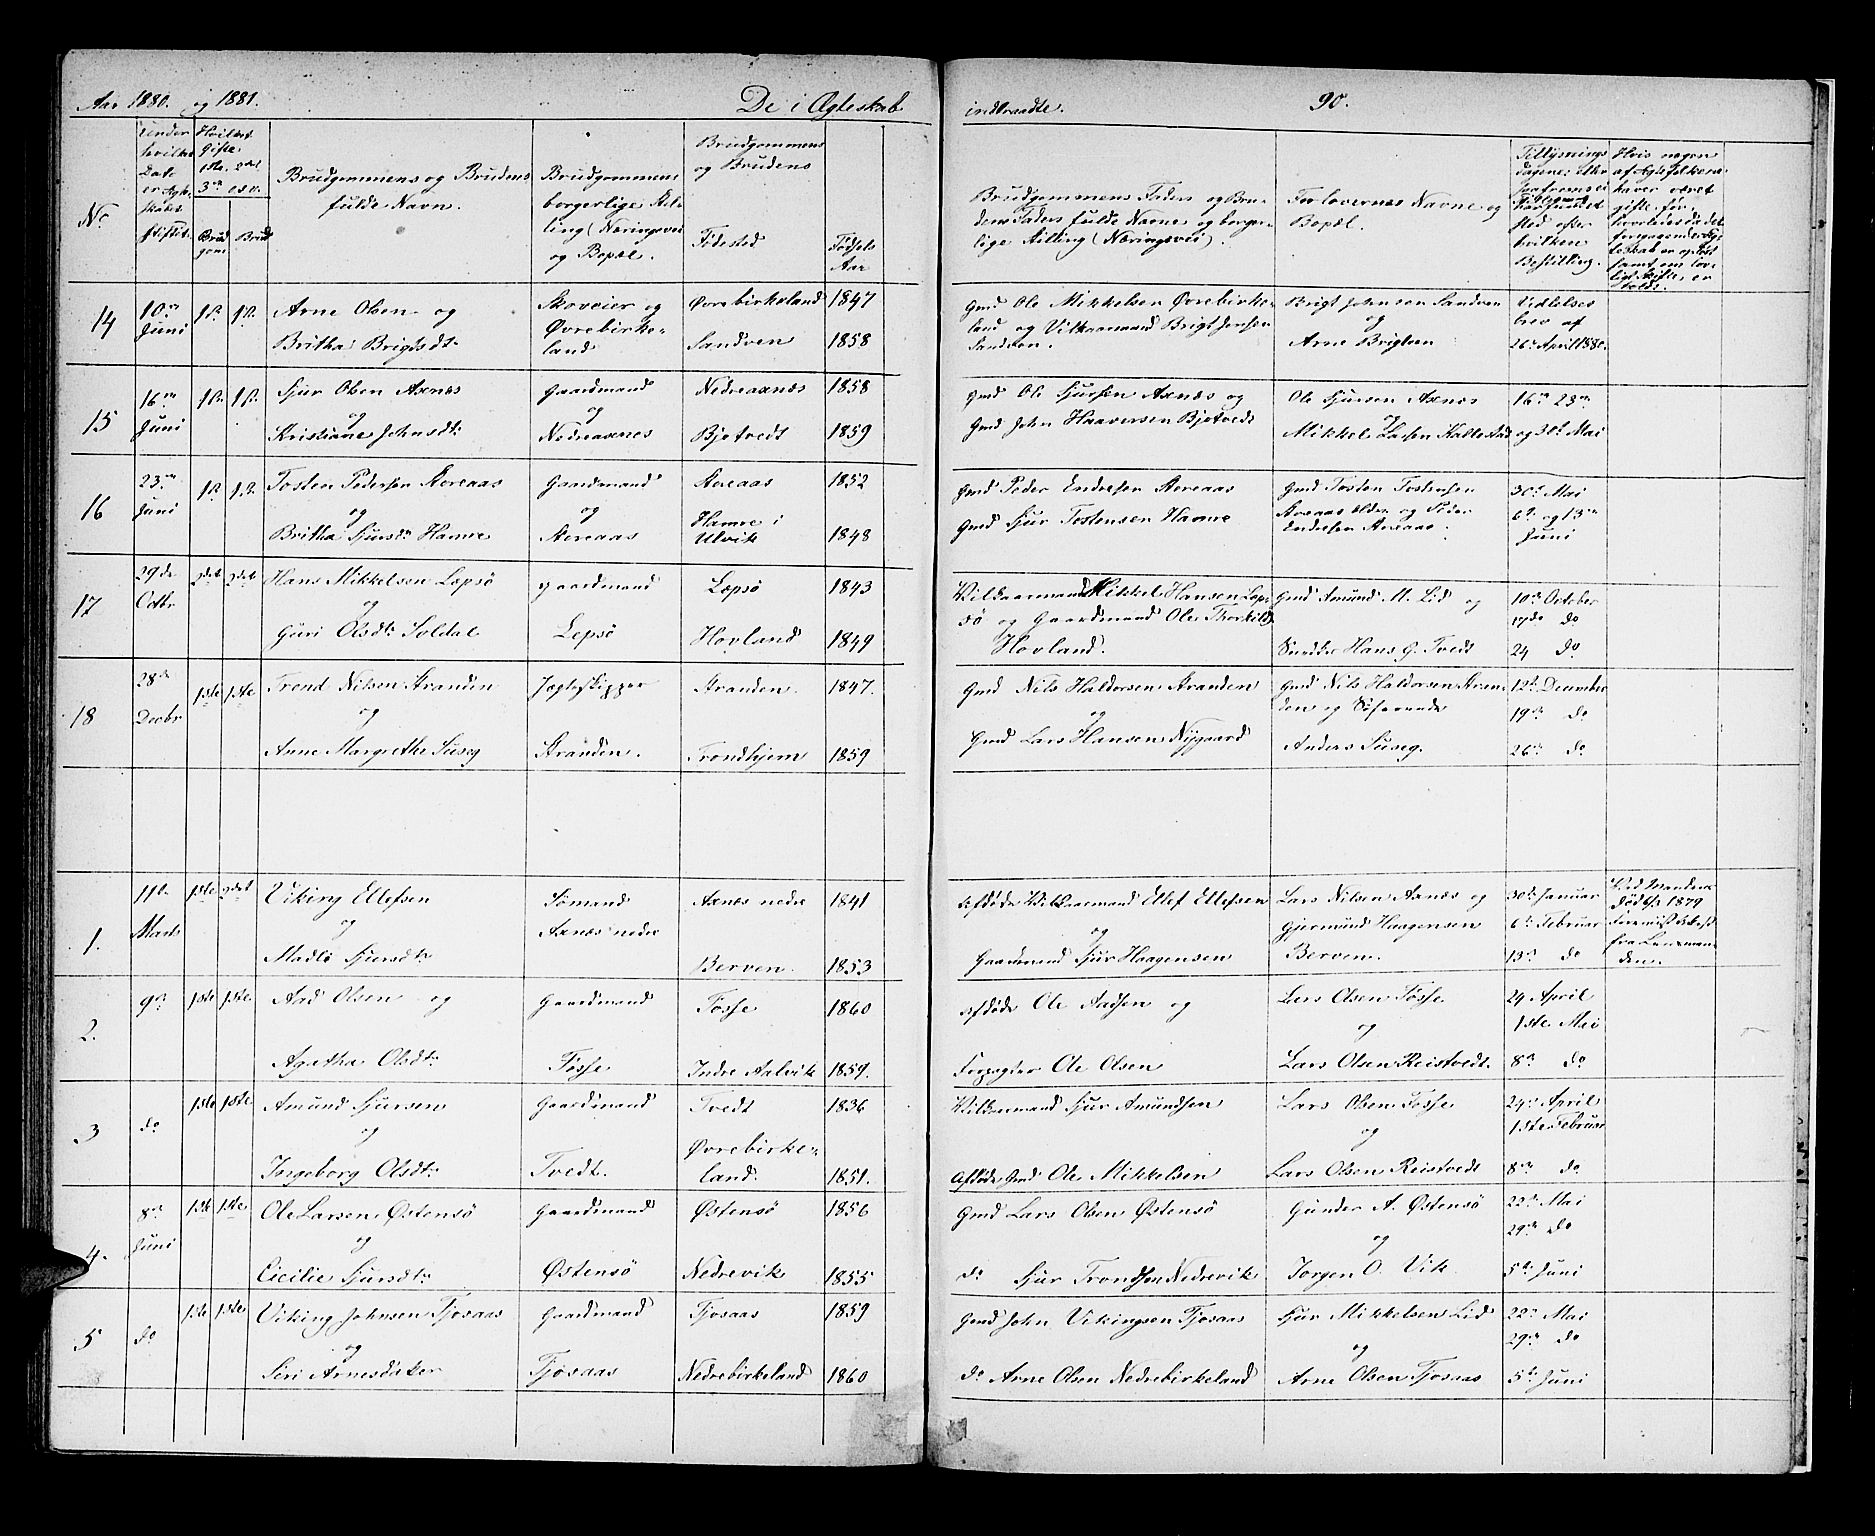 Aar 1880. og 1881.
De i Ægteskab
indtraadte.
90.
No
Under hvilken Dato er Ægteskabet stiftet.
Hvilket Gifte, 1ste, 2det 3die o.s.v.
Brudgom Brud
Brudgommens og Brudens fulde Navn.
Brudgommens borgerlige Stilling (Næringsvei og Bopæl.
Brudgommens og Brudens
Fødested
Fødsels Aar
Brudgommens Faders og Brudens Faders fulde Navne og borgerlige Stilling (Næringsvei).
Forlovernes Navne og Bopæl.
14 10de Juni 1ste 1ste
Arne Olsen og
Britha Brigtsdtr
Skoveier og
Øvrebirkeland
Øvrebirkeland 1847
Sandven 1858
Gmd Ole Mikkelsen Øvrebirkeland og Vilkaarmand Brigt Jonsen Sandven.
Brigt Johnsen Sandven
og
Arne Brigtsen
26de April 1880.
15 16de Juni 1ste 1ste
Sjur Olsen Axnæs
og
Kristiane Johnsdtr
Gaardmand
og
Nedreaxnes
Nedreaxnæs 1858
Bjotvedt 1859
Gmd Ole Sjursen Axnæs og
Gmd John Haaversen Bjotvedt
Ole Sjursen Axnæs
og
Mikkel Larsen Kallestad
16de 23de
og 30te Mai
16 23de Juni 1ste 1ste
Tosten Pedersen Aereaas
og
Britha Sjursdtr Hamre
Gaardmand
og
Aereaas
Aereaas 1852
Hamre i Ulvik 1848
Gmd Peder Endresen Aereaas
Gmd Sjur Tostensen Hamre
Gmd Tosten Tostensen
Aereaas ældre og Peder
Endresen Aereaas.
30te Mai
6te og 13de
Juni
17 29de Octbr 2det 2det
Hans Mikkelsen Lepsö
og
Guri Olsdtr Soldal
Gaardmand
Lepsö
Lepsö 1843
Hovland 1849
Vilkaarmand Mikkel Hansen Lepsö og Gaardmand Ole Thorkilds
Hovland.
Gmd Amund M. Lid og
Hans G. Tvedt
10de October
17de do
24 do
18 28de Decbr 1ste 1ste
Trond Nilsen Stranden
og
Anne Margrethe Suseg
Jægteskipper
Stranden.
Stranden. 1847.
Trondhjem 1859
Gmd Nils Haldorsen Stranden
og
Gmd Lars Hansen Nygaard
Gmd Nils Haldorsen Stranden og
Anders Suseg.
12te December
19de do
26de do
1. 11te Marts 1ste 2det
Viking Ellefsen
og
Madli Sjursdtr
Sömand
Axnæs nedre
Axnæs nedre 1841
Berven. 1853
Afdöde Vilkaarmand Ellef Ellefsen
og
Gaardmand Sjur Haagensen
Lars Nilsen Axnæs og
Gjermund Haagensen
Berven.
30te Januar
6te Februar
13de do
fra Lensmanden.
2. 9de 1ste 1ste
Aad Olsen og
Agatha Olsdtr
Gaardmand
Fosse
Fosse 1860
Indre Aalvik 1859.
Afdöde Ole Aadsen og
Forpagter Ole Olsen
Lars Olsen Fosse
og
Lars Olsen Reistvedt.
24 April
1ste Mai
8de do
3 do 1ste 1ste
Amund Sjursen
og
Ingeborg Olsdtr
Gaardmand
Tvedt.
Tvedt 1836
Øvrebirkeland. 1851.
Vilkaarmand Sjur Amundsen
Afdöde Gmd Ole Mikkelsen
Lars Olsen Fosse
og
Lars Olsen Reistvedt
24de April
1ste Februar
8de do
4. 8de Juni 1ste 1ste
Ole Larsen Østensö
og
Cicilie Sjursdtr
Gaardmand
Østensö
Østensö 1856
Nedrevik 1855
Gmd Lars Olsen Østensö
do Sjur Trondsen Nedrevik
Gunder A. Østensö
og
Jorgen O. Vik
22de Mai
29de do
5te Juni
5 do 1ste 1ste
Viking Johnsen Tjosaas
og
Siri Arnesdatter
Gaardmand
Tjosaas
Tjosaas 1859
Nedrebirkeland 1860
Gmd John Vikingsen Tjosaas
do Arne Olsen Nedrebirkeland
Sjur Mikkelsen Lid
og
Arne Olsen Tjosaas
22de Mai
29de do
5te Juni